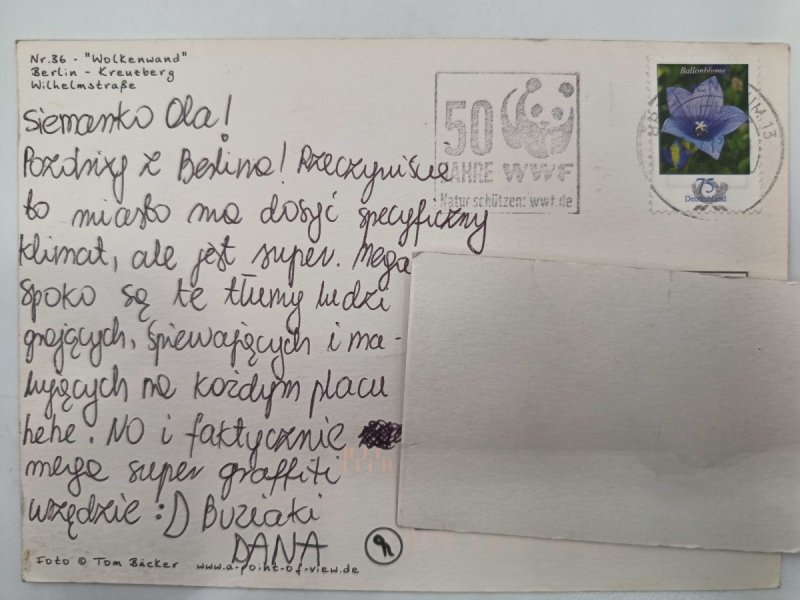 Nr.36 - "Wolkenwand"
Berlin - Kreuzberg
Wilhelmstraße
Siemanko Ola!
Pozdrixy z Berlina! Rzeczywiście
to miasto ma dosyć specyficzny
klimat, ale jest super. Mega
spoko są te tłumy ludzi
grających, śpiewających i ma-
lujących na każdym placu
hehe. NO i faktycznie
mega super graffiti
wszędzie :D Buziaki
DANA
Foto © Tom Bäcker www.a-point-of-view.de
50
JAHRE WWF
Natur schützen: wwf.de
Ballonblume
75
Deutschland
13